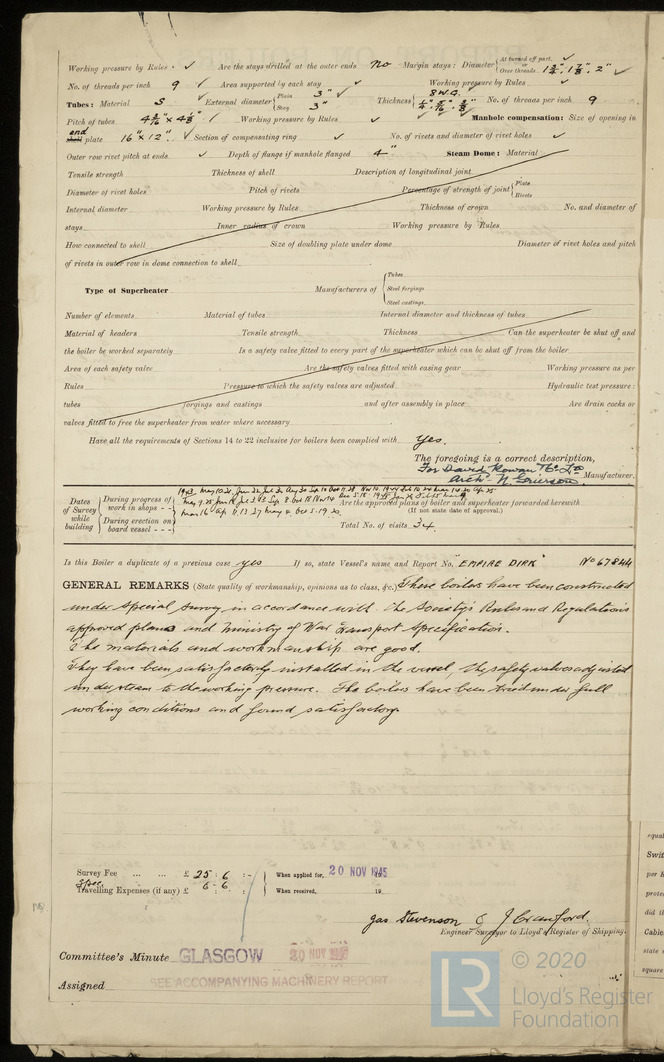 Working pressure by Rules - ✓ Are the stays drilled at the outer ends No Margin stays: Diameter { At turned off part, ✓ Over threads 1¾", 1⅞", 2" ✓
No. of threads per inch 9 ✓ Area supported by each stay ✓ Working pressure by Rules ✓
Tubes: Material S ✓ External diameter { Plain 3" ✓ Stay 3" Thickness { 8 W.G. ¼", 5/16", ⅜" No. of threads per inch 9
Pitch of tubes ✓ Working pressure by Rules ✓ Manhole compensation: Size of opening in
end shell plate 16" x 12" ✓ Section of compensating ring ✓ No. of rivets and diameter of rivet holes ✓
Outer row rivet pitch at ends ✓ Depth of flange if manhole flanged 4" Steam Dome: Material
Tensile strength Thickness of shell Description of longitudinal joint
Diameter of rivet holes Pitch of rivets Percentage of strength of joint { Plate Rivets
Internal diameter Working pressure by Rules Thickness of crown No. and diameter of
stays Inner radius of crown Working pressure by Rules
How connected to shell Size of doubling plate under dome Diameter of rivet holes and pitch
of rivets in outer row in dome connection to shell
Type of Superheater Manufacturers of { Tubes Steel forgings Steel castings
Number of elements Material of tubes Internal diameter and thickness of tubes
Material of headers Tensile strength Thickness Can the superheater be shut off and
the boiler be worked separately Is a safety valve fitted to every part of the superheater which can be shut off from the boiler
Area of each safety valve Are the safety valves fitted with easing gear Working pressure as per
Rules Pressure to which the safety valves are adjusted Hydraulic test pressure:
tubes forgings and castings and after assembly in place Are drain cocks or
valves fitted to free the superheater from water where necessary
Have all the requirements of Sections 14 to 22 inclusive for boilers been complied with Yes.
The foregoing is a correct description,
For David Rowan & Co Ltd
Arch. Manufacturer.
Dates of Survey while building { During progress of work in shops - - During erection on board vessel - - -
1943 May 10
Are the approved plans of boiler and superheater forwarded herewith
(If not state date of approval.)
Total No. of visits 34
Is this Boiler a duplicate of a previous case yes If so, state Vessel's name and Report No. "EMPIRE DIRK" No 67844
GENERAL REMARKS (State quality of workmanship, opinions as to class, &c.) These boilers have been constructed
under special survey in accordance with the Society's Rules and Regulations
approved plans and Ministry of War Transport specification.
The materials and workmanship are good.
They have been satisfactorily installed in the vessel, the safety valves adjusted
under steam to the working pressure. The boilers have been tried under full
working conditions and found satisfactory
Survey Fee ... ... £ 25 : 6 : - When applied for, 20 NOV 1945
Spec.
Travelling Expenses (if any) £ 6 : 6 : When received, 19
Jas Stevenson & J Crawford.
Engineer Surveyor to Lloyd's Register of Shipping.
Committee's Minute GLASGOW 20 NOV
Assigned SEE ACCOMPANYING MACHINERY REPORT
LR
© 2020
Lloyd's Register
Foundation
equal
Swit
per
prote
did th
Cable
state
square